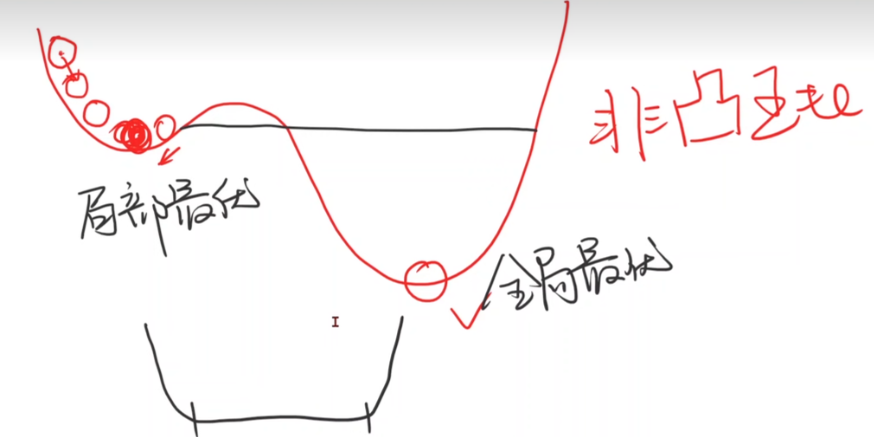 非凸
局部最优
全局最优